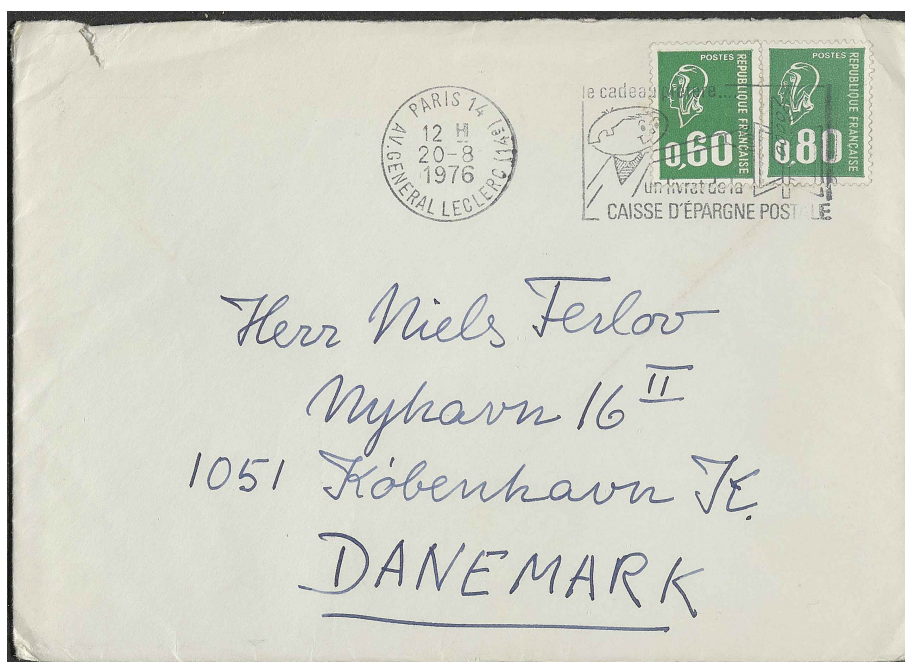 PARIS 14 (14e)
12 H
20-8
1976
AV. GENERAL LECLERC
le cadeau
un livret de la
CAISSE D'ÉPARGNE POSTALE
POSTES
REPUBLIQUE FRANÇAISE
0,60
POSTES
REPUBLIQUE FRANÇAISE
0,80
Herr Niels Ferlov
Nyhavn 16 II
1051 København K.
DANEMARK